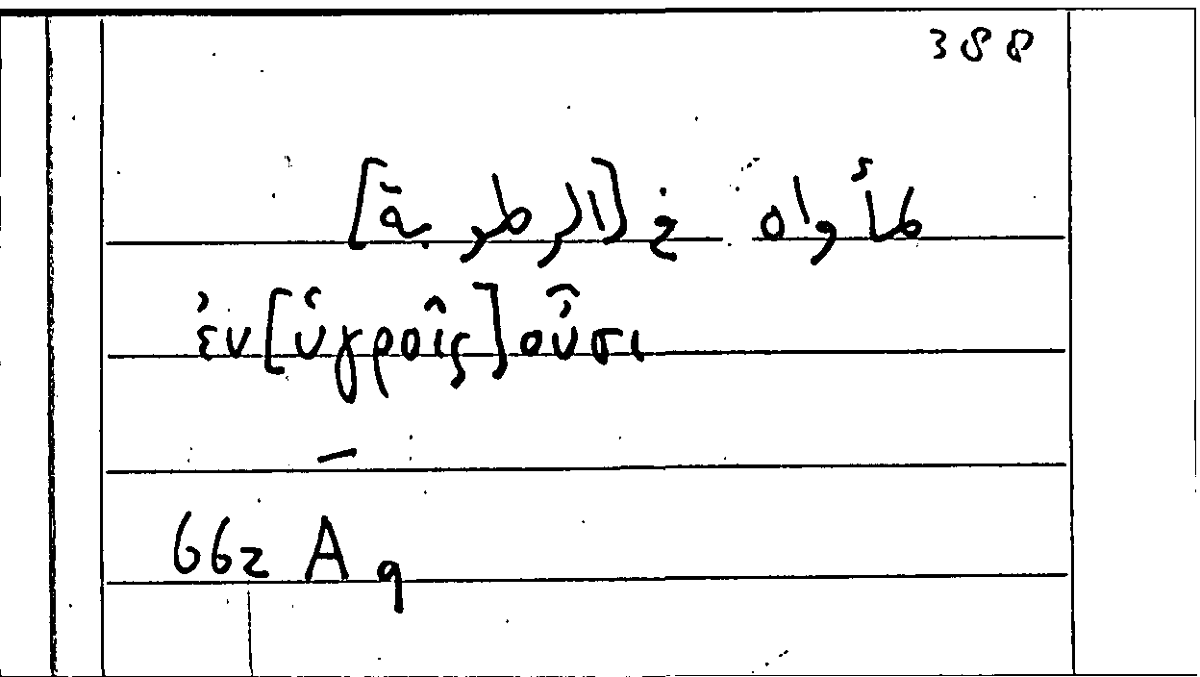 388
لمأواه في [الرطوبة]
ἐν [ὑγροῖς] οὖσι
–
662 A 9